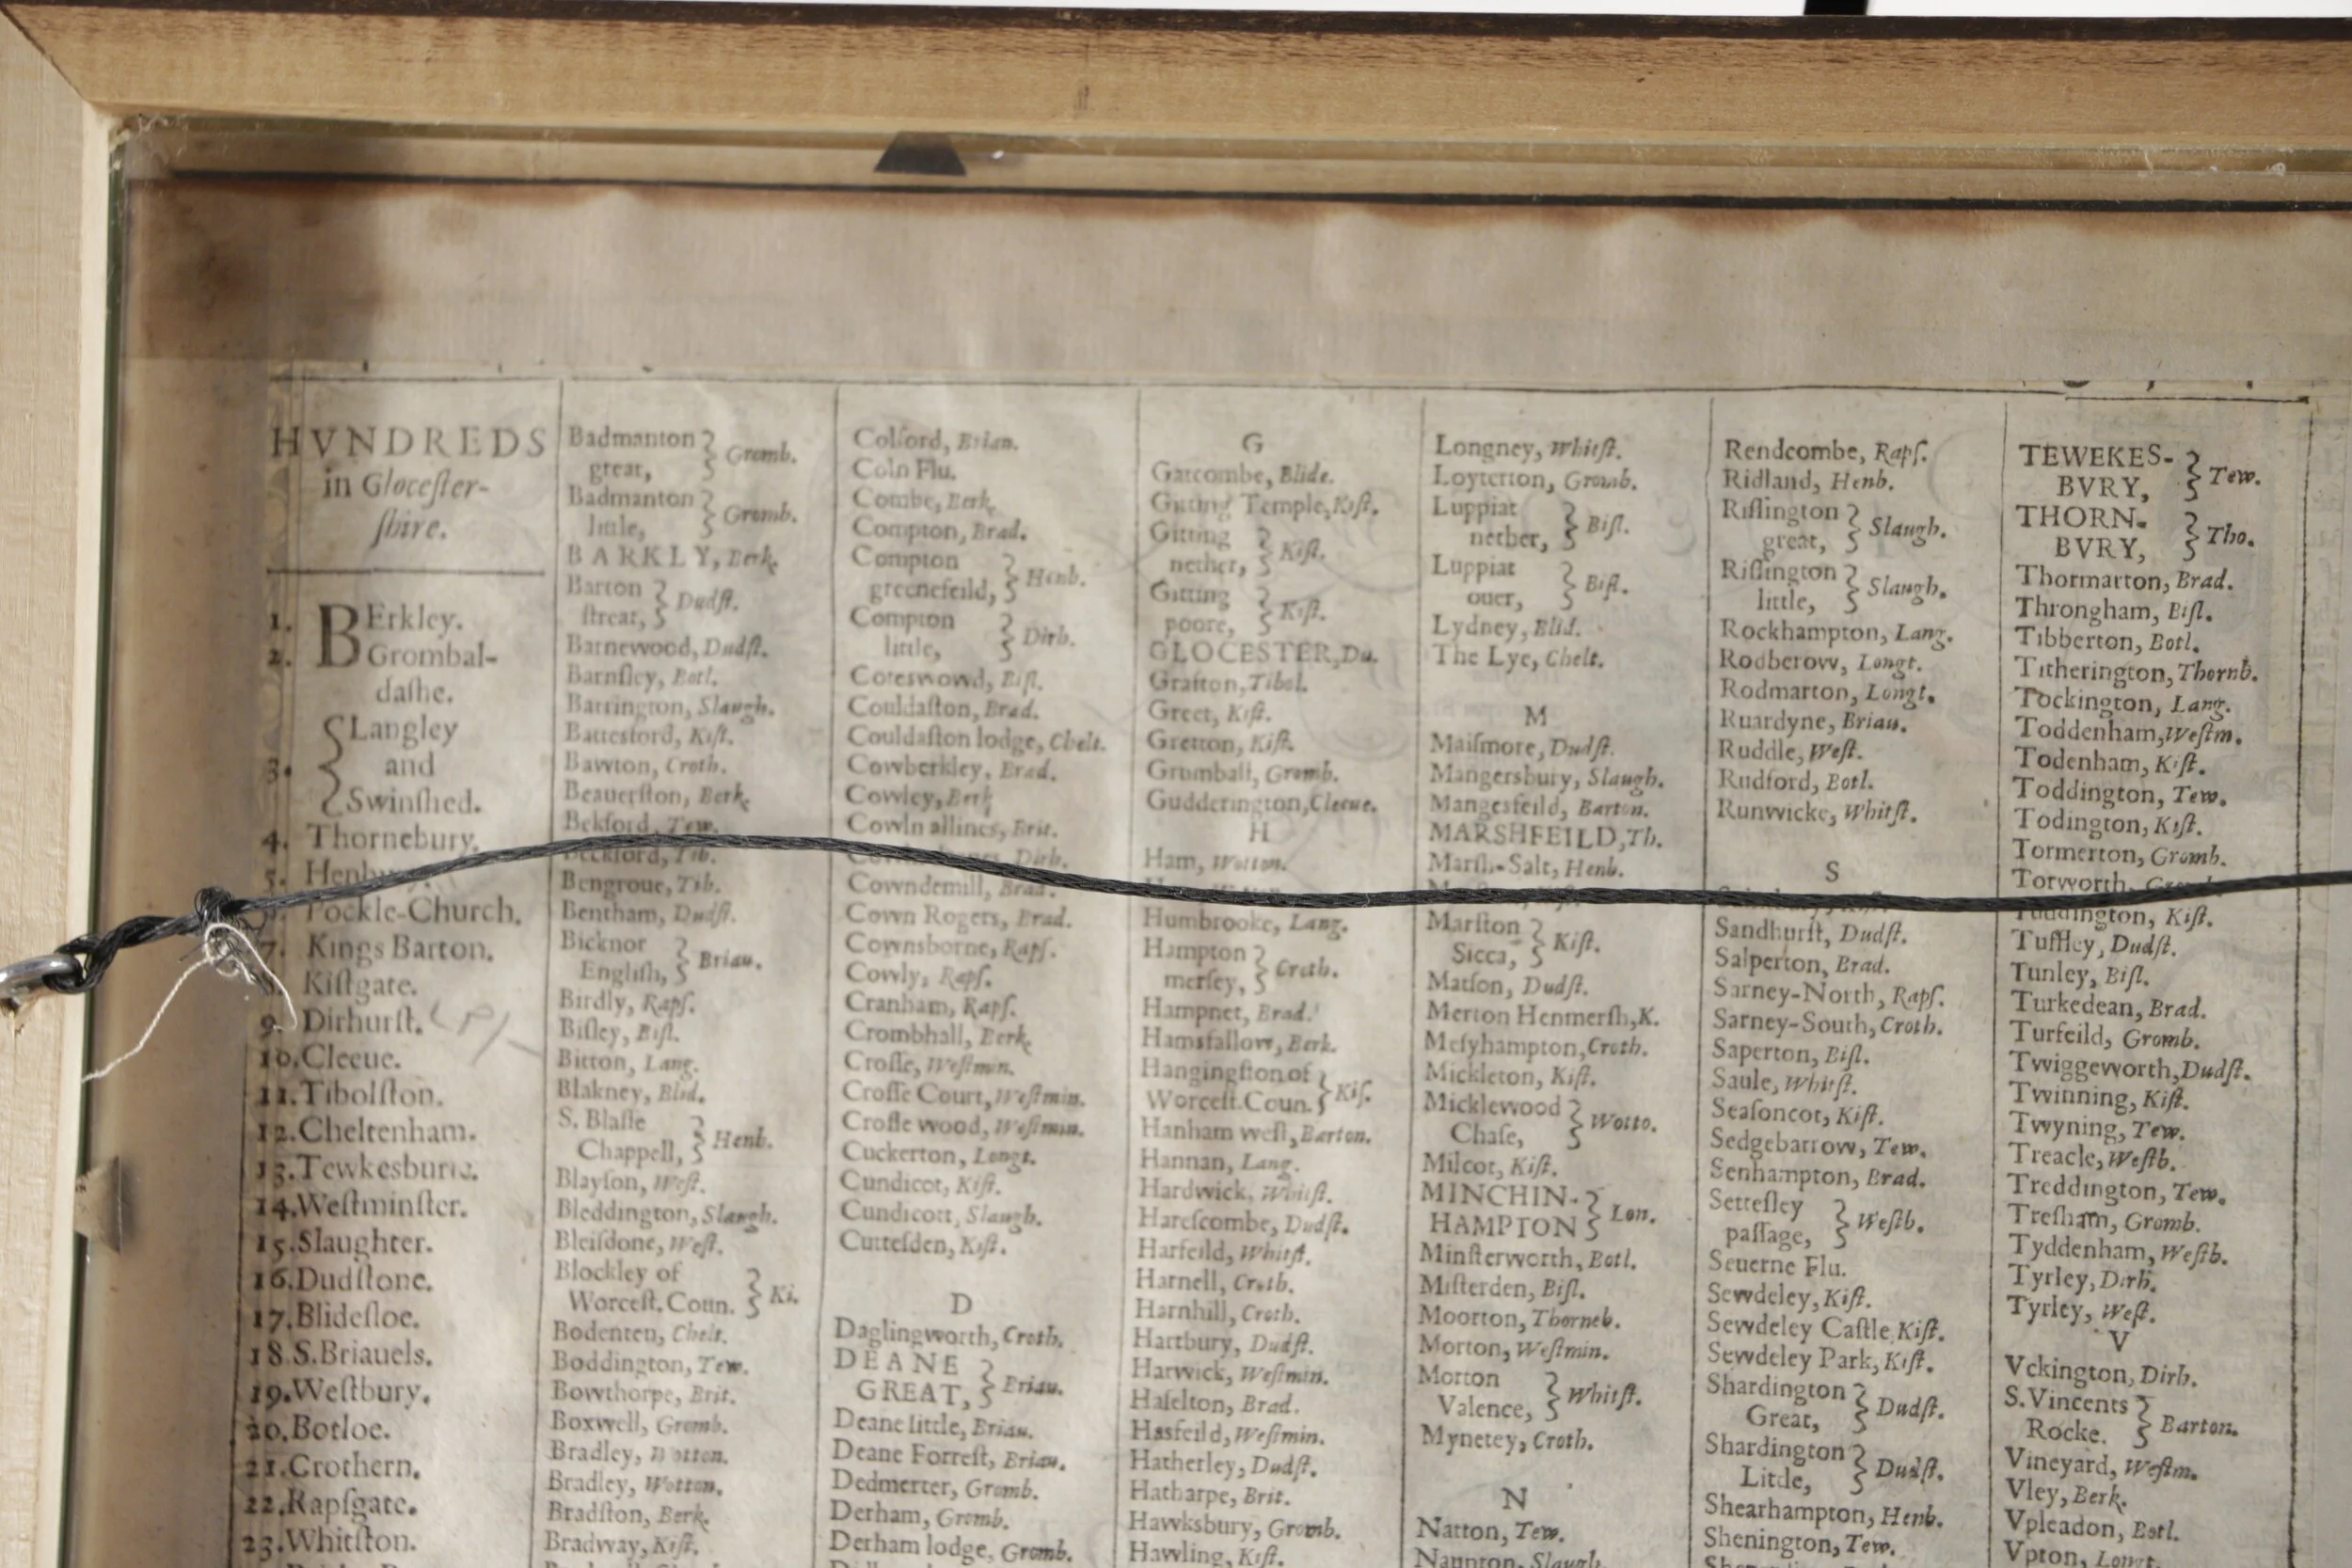 HVNDREDS
in Gloceſter-
ſhire.
1. BErkley.
2. Grombal-
daſhe.
3. { Langley
and
Swinſhed.
4. Thornebury.
5.
Pockle-Church.
7. Kings Barton.
Kiſtgate.
9. Dirhurſt.
10. Cleeue.
11. Tibolſton.
12. Cheltenham.
13. Tewkesburie.
14. Weſtminſter.
15. Slaughter.
16. Dudſtone.
17. Blideſloe.
18 S. Briauels.
19. Weſtbury.
20. Botloe.
21. Crothern.
22. Rapſgate.
23. Whitſton.
Badmanton
great, } Gromb.
Badmanton
little, } Gromb.
BARKLY, Berk.
Barton
ſtreat, } Dudſt.
Barnewood, Dudſt.
Barnſley, Botl.
Barrington, Slaugh.
Battesford, Kiſt.
Bawton, Croth.
Beauerſton, Berk.
Bekford, Tew.
Beckford, Tib.
Bengroue, Tib.
Bentham, Dudſt.
Bicknor
Engliſh, } Briau.
Birdly, Rapſ.
Biſley, Biſl.
Bitton, Lang.
Blakney, Blid.
S. Blaſſe
Chappell, } Henb.
Blayſon, Weſt.
Bleddington, Slaugh.
Bleiſdone, Weſt.
Blockley of
Worceſt. Coun. } Ki.
Bodenten, Chelt.
Boddington, Tew.
Bowthorpe, Brit.
Boxwell, Gromb.
Bradley, Wotton.
Bradley, Wotton.
Bradſton, Berk.
Bradway, Kiſt.
Colford, Brian.
Coln Flu.
Combe, Berk.
Compton, Brad.
Compton
greenefeild, } Henb.
Compton
little, } Dirh.
Coteswowd, Biſl.
Couldaſton, Brad.
Couldaſton lodge, Chelt.
Cowberkley, Brad.
Cowley, Berk
Cowln allines, Brit.
Dirh.
Cowndemill, Brad.
Cown Rogers, Brad.
Cownsborne, Rapſ.
Cowly, Rapſ.
Cranham, Rapſ.
Crombhall, Berk.
Croſſe, Weſtmin.
Croſſe Court, Weſtmin.
Croſſe wood, Weſtmin.
Cuckerton, Longt.
Cundicot, Kiſt.
Cundicott, Slaugh.
Cutteſden, Kiſt.
D
Daglingworth, Croth.
DEANE
GREAT, } Briau.
Deane little, Briau.
Deane Forreſt, Briau.
Dedmerter, Gromb.
Derham, Gromb.
Derham lodge, Gromb.
G
Gatcombe, Blide.
Gitting Temple, Kiſt.
Gitting
nether, } Kiſt.
Gitting
poore, } Kiſt.
GLOCESTER, Du.
Grafton, Tibol.
Greet, Kiſt.
Gretton, Kiſt.
Grumball, Gromb.
Gudderington, Cleeue.
H
Ham, Wotton.
Humbrooke, Lang.
Hampton
merſey, } Croth.
Hampnet, Brad.
Hamsfallow, Berk.
Hangingſton of
Worceſt. Coun. } Kiſ.
Hanham weſt, Barton.
Hannan, Lang.
Hardwick, Whitſt.
Hareſcombe, Dudſt.
Harfeild, Whitſt.
Harnell, Croth.
Harnhill, Croth.
Hartbury, Dudſt.
Harwick, Weſtmin.
Haſelton, Brad.
Hasfeild, Weſtmin.
Hatherley, Dudſt.
Hatharpe, Brit.
Hawksbury, Gromb.
Hawling, Kiſt.
Longney, Whitſt.
Loyterton, Gromb.
Luppiat
nether, } Biſl.
Luppiat
ouer, } Biſl.
Lydney, Blid.
The Lye, Chelt.
M
Maiſmore, Dudſt.
Mangersbury, Slaugh.
Mangesfeild, Barton.
MARSHFEILD, Th.
Marſh-Salt, Henb.
Marſton
Sicca, } Kiſt.
Matſon, Dudſt.
Merton Henmerſh, K.
Meſyhampton, Croth.
Mickleton, Kiſt.
Micklewood
Chaſe, } Wotto.
Milcot, Kiſt.
MINCHIN-
HAMPTON } Lon.
Minſterworth, Botl.
Miſterden, Biſl.
Moorton, Thorneb.
Morton, Weſtmin.
Morton
Valence, } Whitſt.
Mynetey, Croth.
N
Natton, Tew.
Naunton, Slaugh.
Rendcombe, Rapſ.
Ridland, Henb.
Riſſington
great, } Slaugh.
Riſſington
little, } Slaugh.
Rockhampton, Lang.
Rodberow, Longt.
Rodmarton, Longt.
Ruardyne, Briau.
Ruddle, Weſt.
Rudford, Botl.
Runwicke, Whitſt.
S
Sandhurſt, Dudſt.
Salperton, Brad.
Sarney-North, Rapſ.
Sarney-South, Croth.
Saperton, Biſl.
Saule, Whitſt.
Seaſoncot, Kiſt.
Sedgebarrow, Tew.
Senhampton, Brad.
Setteſley
paſſage, } Weſtb.
Seuerne Flu.
Sewdeley, Kiſt.
Sewdeley Caſtle Kiſt.
Sewdeley Park, Kiſt.
Shardington
Great, } Dudſt.
Shardington
Little, } Dudſt.
Shearhampton, Henb.
Shenington, Tew.
TEWEKES-
BVRY, } Tew.
THORN-
BVRY, } Tho.
Thormarton, Brad.
Throngham, Biſl.
Tibberton, Botl.
Titherington, Thornb.
Tockington, Lang.
Toddenham, Weſtm.
Todenham, Kiſt.
Toddington, Tew.
Todington, Kiſt.
Tormerton, Gromb.
Torworth,
Tuddington, Kiſt.
Tuffley, Dudſt.
Tunley, Biſl.
Turkedean, Brad.
Turfeild, Gromb.
Twiggeworth, Dudſt.
Twinning, Kiſt.
Twyning, Tew.
Treacle, Weſtb.
Treddington, Tew.
Treſham, Gromb.
Tyddenham, Weſtb.
Tyrley, Dirh.
Tyrley, Weſt.
V
Vckington, Dirh.
S. Vincents
Rocke. } Barton.
Vineyard, Weſtm.
Vley, Berk.
Vpleadon, Botl.
Vpton, Longt.